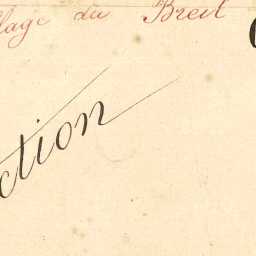 llage du Breil
ction